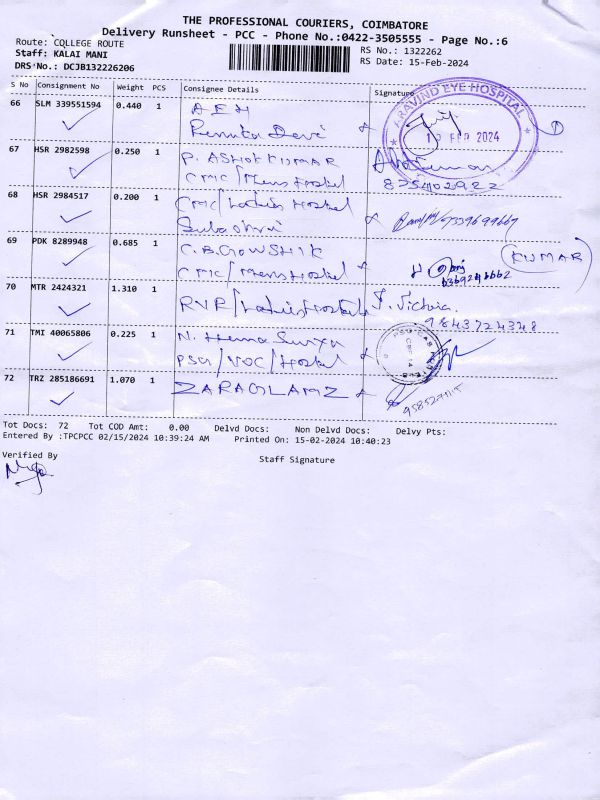 THE PROFESSIONAL COURIERS, COIMBATORE
Delivery Runsheet - PCC - Phone No.:0422-3505555 - Page No.:6
Route: COLLEGE ROUTE
RS No.: 1322262
Staff: KALAI MANI
RS Date: 15-Feb-2024
DRS No.: DCJB132226206
S No Consignment No Weight PCS Consignee Details Signature
66 SLM 339551594 0.440 1 AEH
Renuka Devi
ARAVIND EYE HOSPITAL
FEB 2024
67 HSR 2982598 0.250 1 P. ASHOK KUMAR
CMC/Mens Hostel
68 HSR 2984517 0.200 1 CMC/Ladies Hostel
69 PDK 8289948 0.685 1 C.B. GOWSHIK
CMC/Mens Hostel
(KUMAR)
70 MTR 2424321 1.310 1
RVR/Ladies Hostel J. Victoria.
9843724348
71 TMI 40065806 0.225 1 N. Hema Surya
PSG/VOC/Hostel
72 TRZ 285186691 1.070 1 ZARAGLAMZ
Tot Docs: 72 Tot COD Amt: 0.00 Delvd Docs: Non Delvd Docs: Delvy Pts:
Entered By :TPCPCC 02/15/2024 10:39:24 AM Printed On: 15-02-2024 10:40:23
Verified By
Staff Signature